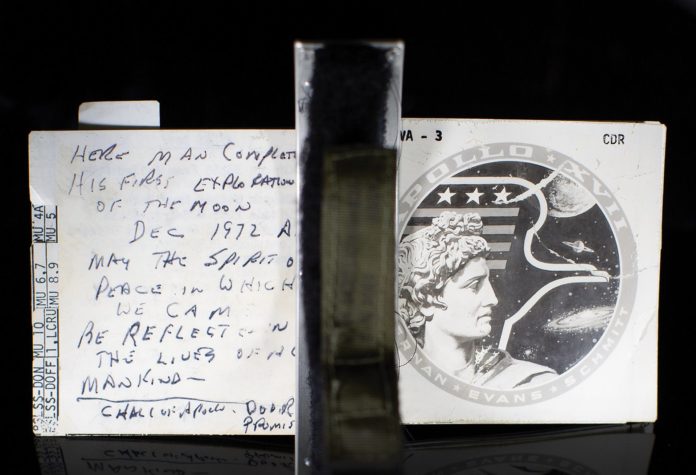 HERE MAN COMPLET
HIS FIRST EXPLORATION
OF THE MOON
DEC 1972 A
MAY THE SPIRIT O
PEACE IN WHICH
WE CAM
BE REFLECT IN
THE LIVES OF
MANKIND—
CHALL OF APOLLO.
PROMIS
MU 4A
MU 5
MU 6.7
MU 8.9
MU 10
1.LCRU
PLSS-DON
PLSS-DOFF
VA - 3
CDR
APOLLO XVII
NAN · EVANS · SCHMITT